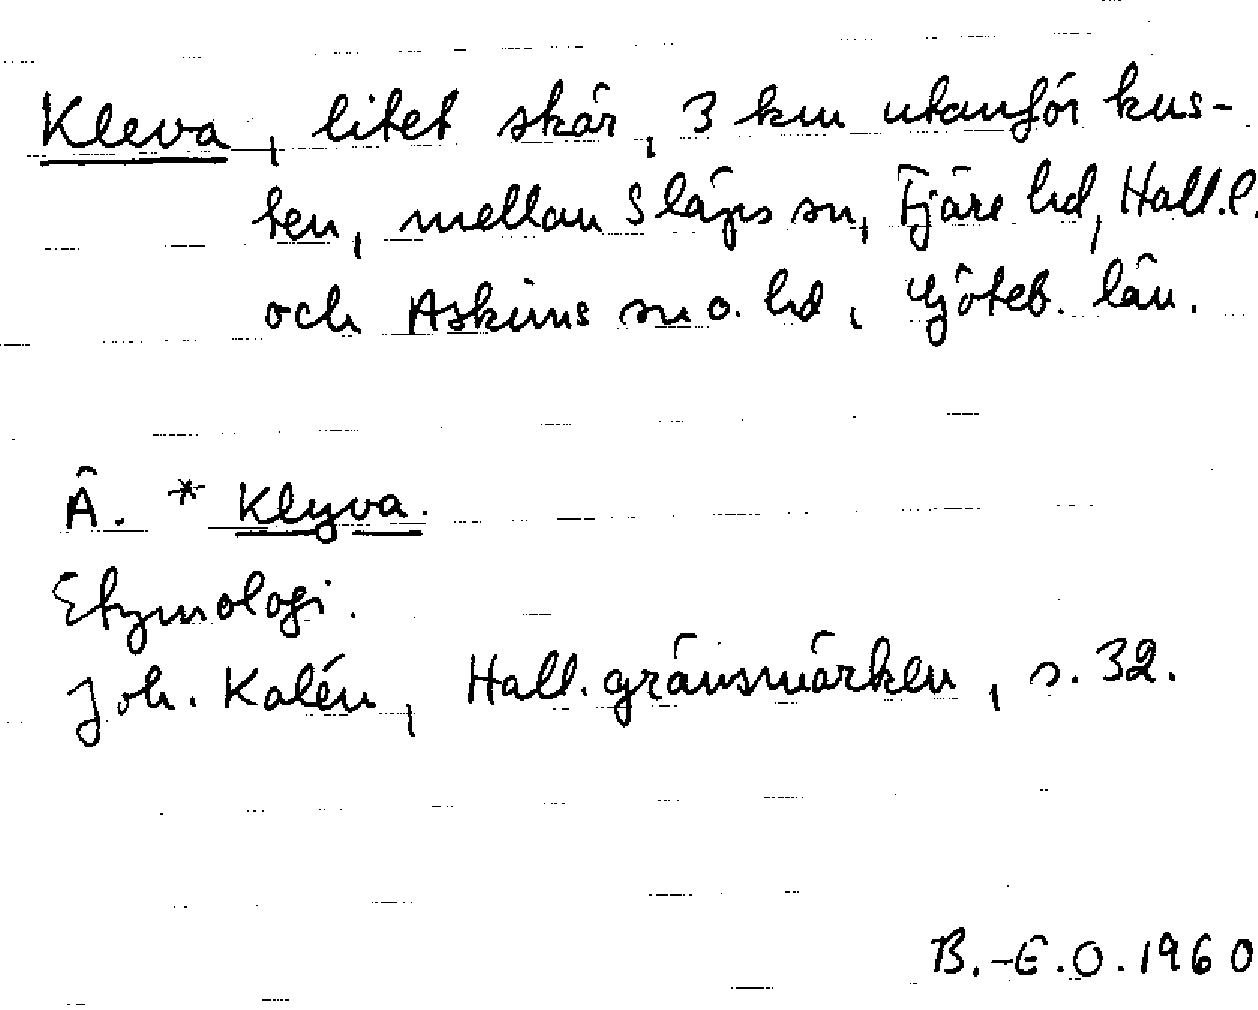 Kleva, litet skär, 3 km utanför kus-
ten, mellan Släps sn, Fjäre hd, Hall.l.
och Askims sn o. hd, Göteb. län.
Ä. * Klyva.
Etymologi.
Joh. Kalén, Hall. gränsmärken, s. 32.
B.-E.O. 1960